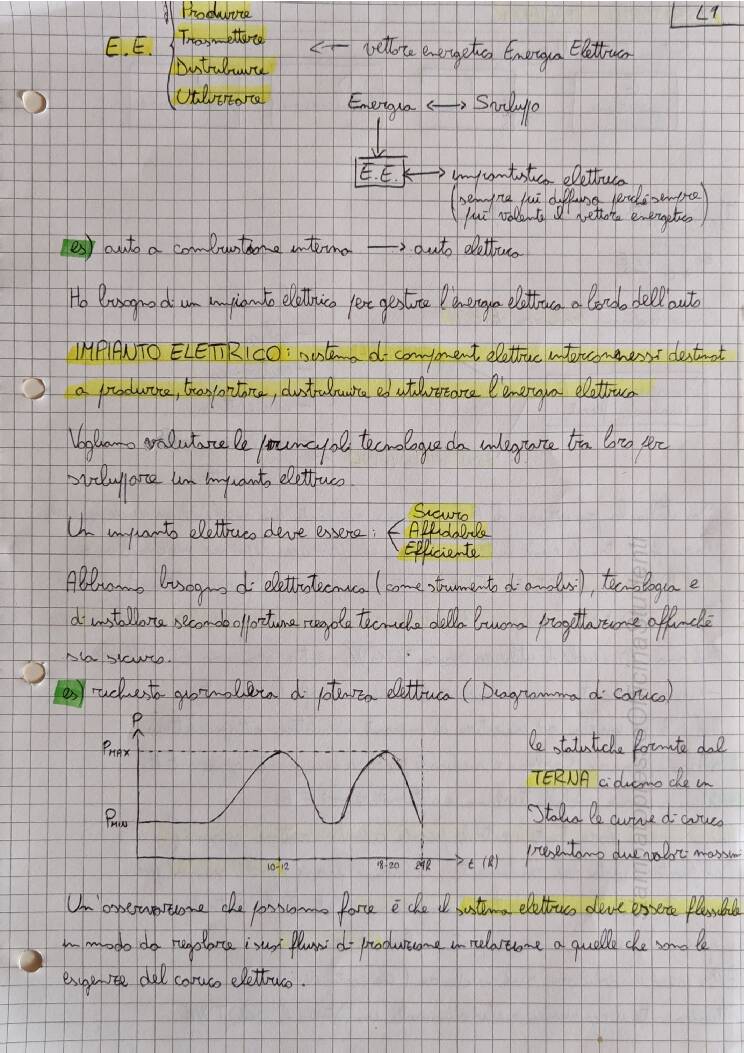 L1
Produrre
E.E. Trasmettere <— vettore energetico Energia Elettrica
Distribuire
Utilizzare
Energia <—> Sviluppo
E.E. <—> impiantistica elettrica
(sempre più diffusa perché sempre
più valente il vettore energetico)
es) auto a combustione interna —> auto elettrica
Ho bisogno di un impianto elettrico per gestire l'energia elettrica a bordo dell'auto
IMPIANTO ELETTRICO: sistema di componenti elettrici interconnessi destinati
a produrre, trasportare, distribuire ed utilizzare l'energia elettrica
Vogliamo valutare le principali tecnologie da integrare tra loro per
sviluppare un impianto elettrico.
Sicuro
Un impianto elettrico deve essere: Affidabile
Efficiente
Abbiamo bisogno di elettrotecnica (come strumento di analisi), tecnologia e
di installare secondo opportune regole tecniche della buona progettazione affinché
sia sicuro.
es) richiesta giornaliera di potenza elettrica (Diagramma di carico)
P
PMAX
PMIN
10-12 18-20 24h t (h)
le statistiche fornite dal
TERNA ci dicono che in
Italia le curve di carico
presentano due valori massimi
Un'osservazione che possiamo fare è che il sistema elettrico deve essere flessibile
in modo da regolare i suoi flussi di produzione in relazione a quelle che sono le
esigenze del carico elettrico.